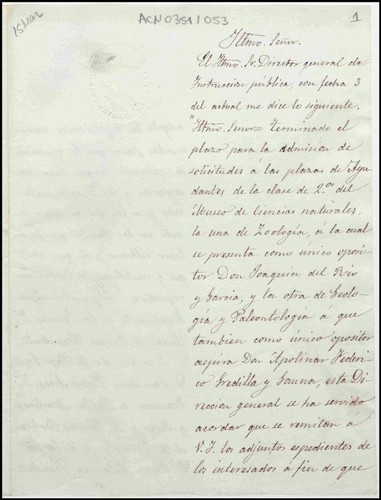 15 Mar
ACN0351/053
1
Iltmo. Señor.
El Iltmo. Sr. Director general de
Instruccion pública, con fecha 3
del actual me dice lo siguiente.
"Iltmo. Señor = Terminado el
plazo para la admision de
solicitudes á las plazas de Ayu
dantes de la clase de 2.os del
Museo de Ciencias naturales,
la una de Zoología, á la cual
se presenta como único oposi
tor Don Joaquin del Rio
y García, y la otra de Geolo-
gía y Paleontología a que
tambien como único opositor
aspira Don Apolinar Federi
co Gredilla y Gauna, esta Di
reccion general se ha servido
acordar que se remitan á
V. I. los adjuntos espedientes de
los interesados á fin de que